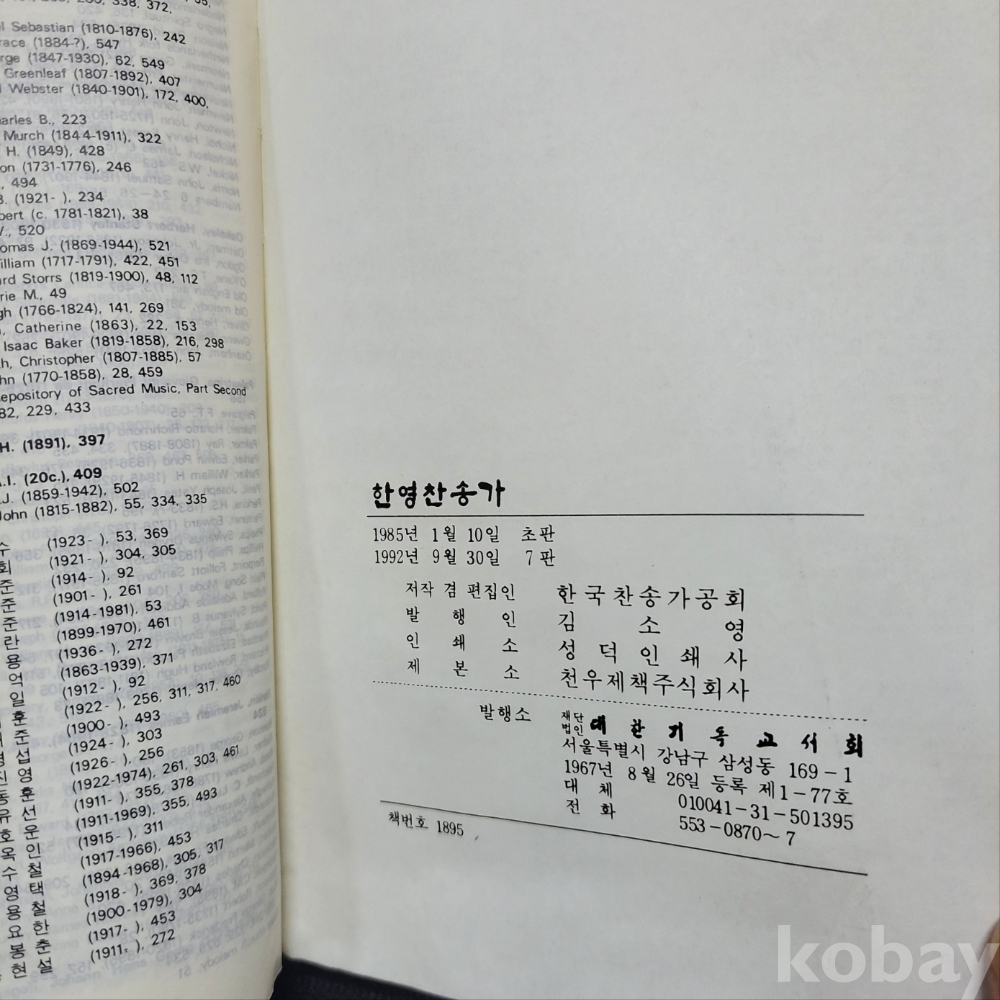 338, 372,
Sebastian (1810-1876), 242
(1884-?), 547
(1847-1930), 62, 549
Greenleaf (1807-1892), 407
Webster (1840-1901), 172, 400,
B., 223
Murch (1844-1911), 322
H. (1849), 428
(1731-1776), 246
494
(1921- ), 234
(c. 1781-1821), 38
520
J. (1869-1944), 521
(1717-1791), 422, 451
Storrs (1819-1900), 48, 112
M., 49
(1766-1824), 141, 269
Catherine (1863), 22, 153
Isaac Baker (1819-1858), 216, 298
Christopher (1807-1885), 57
(1770-1858), 28, 459
of Sacred Music, Part Second
229, 433
H. (1891), 397
(20c.), 409
(1859-1942), 502
(1815-1882), 55, 334, 335
수 (1923- ), 53, 369
회 (1921- ), 304, 305
준 (1914- ), 92
준 (1901- ), 261
준 (1914-1981), 53
란 (1899-1970), 461
용 (1936- ), 272
억 (1863-1939), 371
일 (1912- ), 92
훈 (1922- ), 256, 311, 317, 460
준 (1900- ), 493
섭 (1924- ), 303
영 (1926- ), 256
훈 (1922-1974), 261, 303, 461
유 선 (1911- ), 355, 378
호 운 (1911-1969), 355, 493
옥 인 (1915- ), 311
수 철 (1917-1966), 453
영 택 (1894-1968), 305, 317
용 철 (1918- ), 369, 378
요 한 (1900-1979), 304
봉 춘 (1917- ), 453
현 설 (1911- ), 272
한영찬송가
1985년 1월 10일 초판
1992년 9월 30일 7판
저작 겸 편집인 한국찬송가공회
발 행 인 김 소 영
인 쇄 소 성 덕 인 쇄 사
제 본 소 천우제책주식회사
발행소 재단법인 대한기독교서회
서울특별시 강남구 삼성동 169-1
1967년 8월 26일 등록 제1-77호
대 체 010041-31-501395
전 화 553-0870~7
책번호 1895
kobay